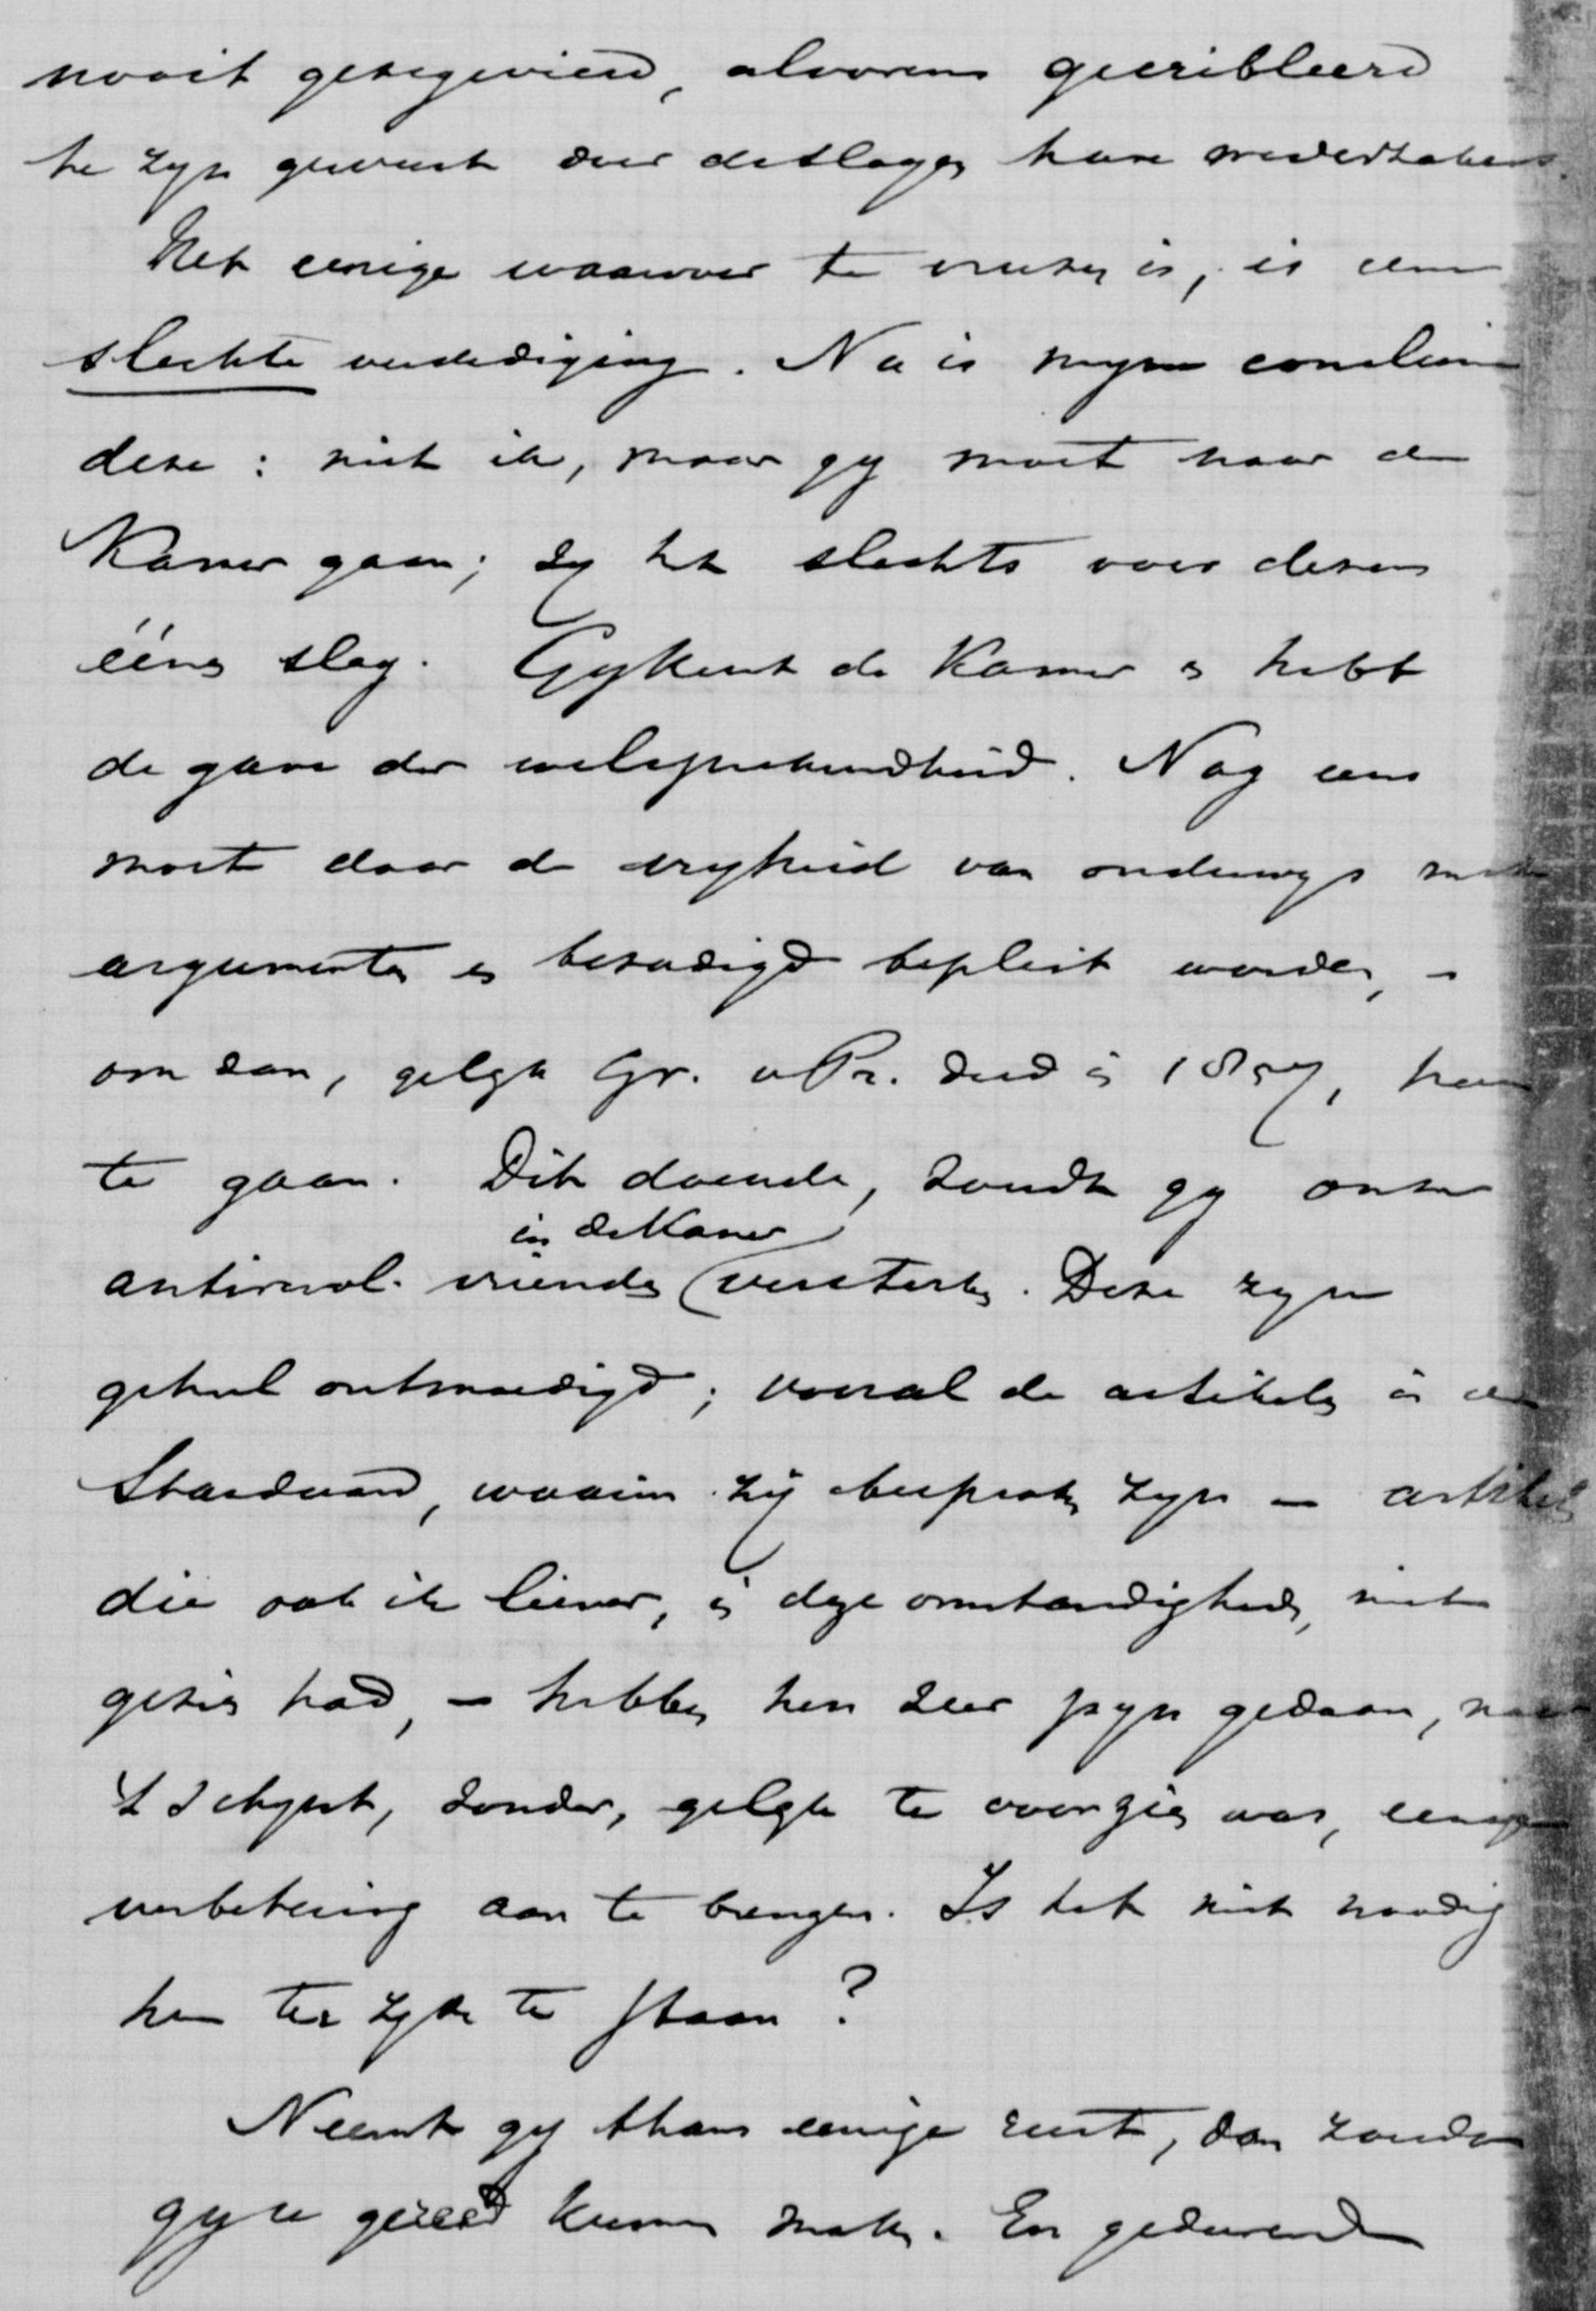 nooit gezegevierd, alvorens gecribleerd
te zyn geweest door de slagen harer wederzakers.
Het eenige waarvoor te vreezen is, is eene
slechte verdediging. Nu is myne conclusie
deze: niet ik, maar gy moet naar de
Kamer gaan; zy het slechts voor dezen
éénen slag. Gy kent de Kamer en hebt
de gave der welsprekendheid. Nog eens
moet daar de vryheid van onderwys met
argumenten en bezadigd bepleit worden, –
om dan, gelyk Gr. v Pr. deed in 1857, heen
te gaan. Dit doende, zoudt gy onze
antirevol. vrienden (in de Kamer) versterken. Deze zyn
geheel ontmoedigd; vooral de artikelen in de
Standaard, waarin zij besproken zyn – artikelen
die ook ik liever, in deze omstandigheden, niet
gezien had, – hebben hen zeer pyn gedaan, naar
't schynt, zonder, gelyk te voorzien was, eenige
verbetering aan te brengen. Is het niet noodig
hen ter zyde te staan?
Neemt gy thans eenige rust, dan zoudt
gy u gereed kunnen maken. En gedurende